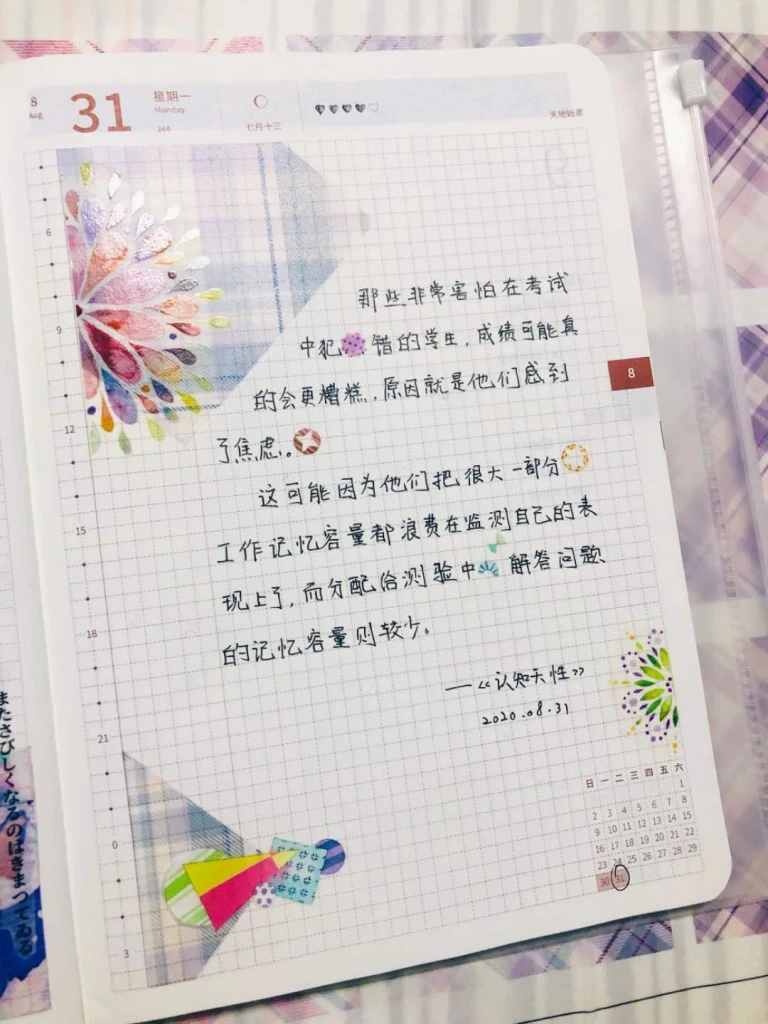 8
Aug
31
星期一
Monday
244
七月十三
天地始肃
6
9
12
15
18
21
0
3
那些非常害怕在考试
中犯错的学生，成绩可能真
的会更糟糕，原因就是他们感到
了焦虑。
这可能因为他们把很大一部分
工作记忆容量都浪费在监测自己的表
现上了，而分配给测验中解答问题
的记忆容量则较少。
—《认知天性》
2020.08.31
8
日 一 二 三 四 五 六
1
2 3 4 5 6 7 8
9 10 11 12 13 14 15
16 17 18 19 20 21 22
23 24 25 26 27 28 29
30 31
またさびしくなるのはきまつてゐる